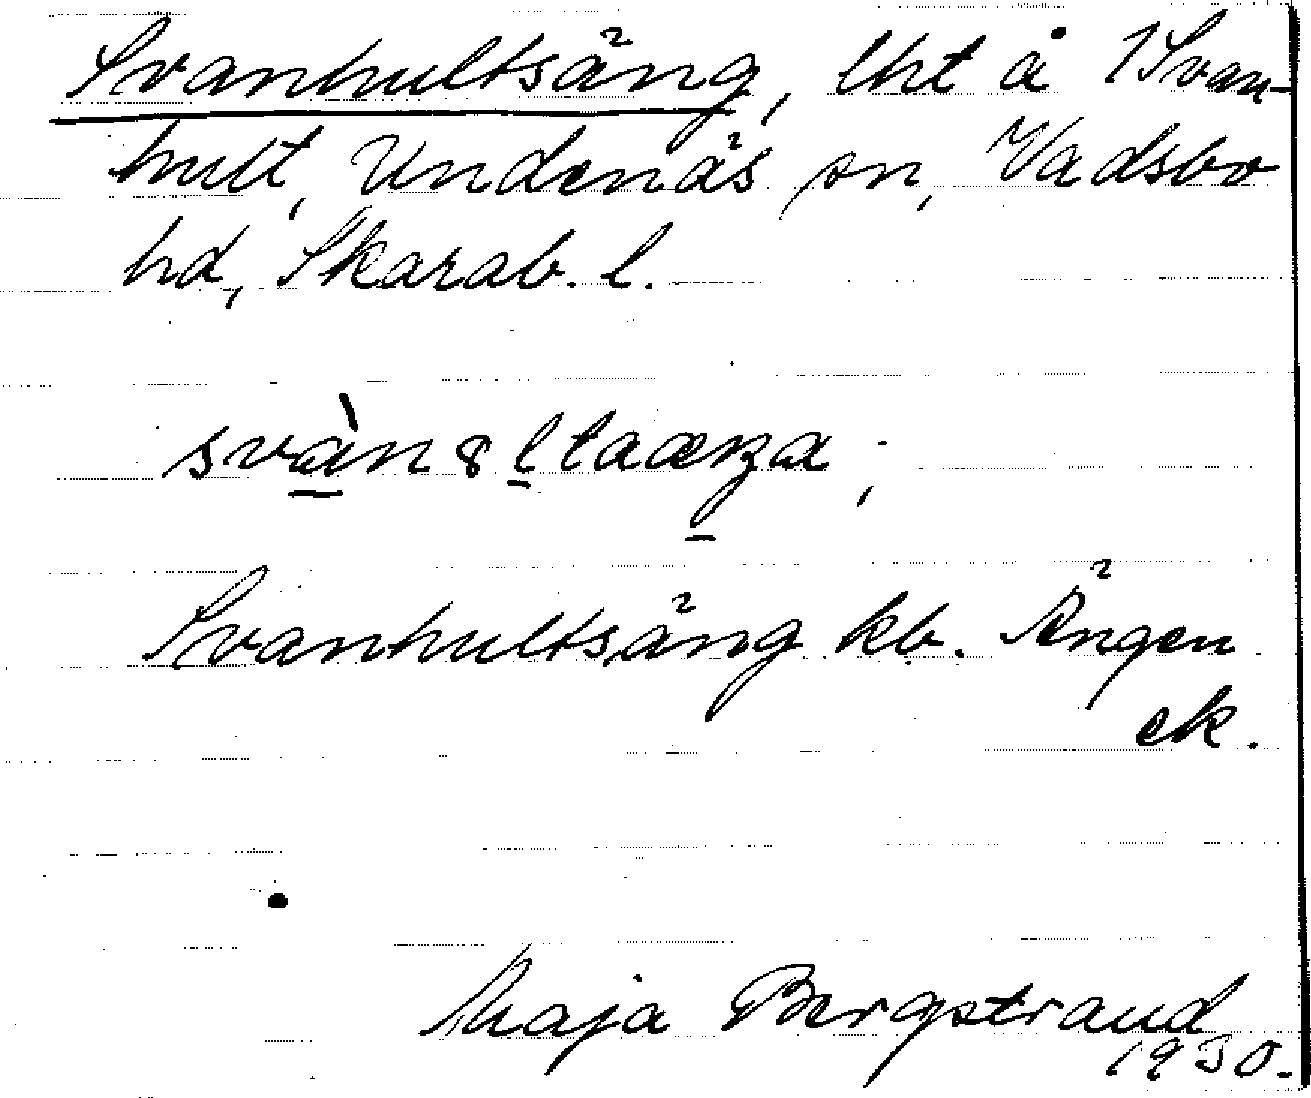 Svanhultsäng, lht å 1 Svan-
hult, Undenäs sn, Vadsbo
hd, Skarab. l.
Svanhultsäng kb. Ängen
ek.
Maja Bergstrand
1930.